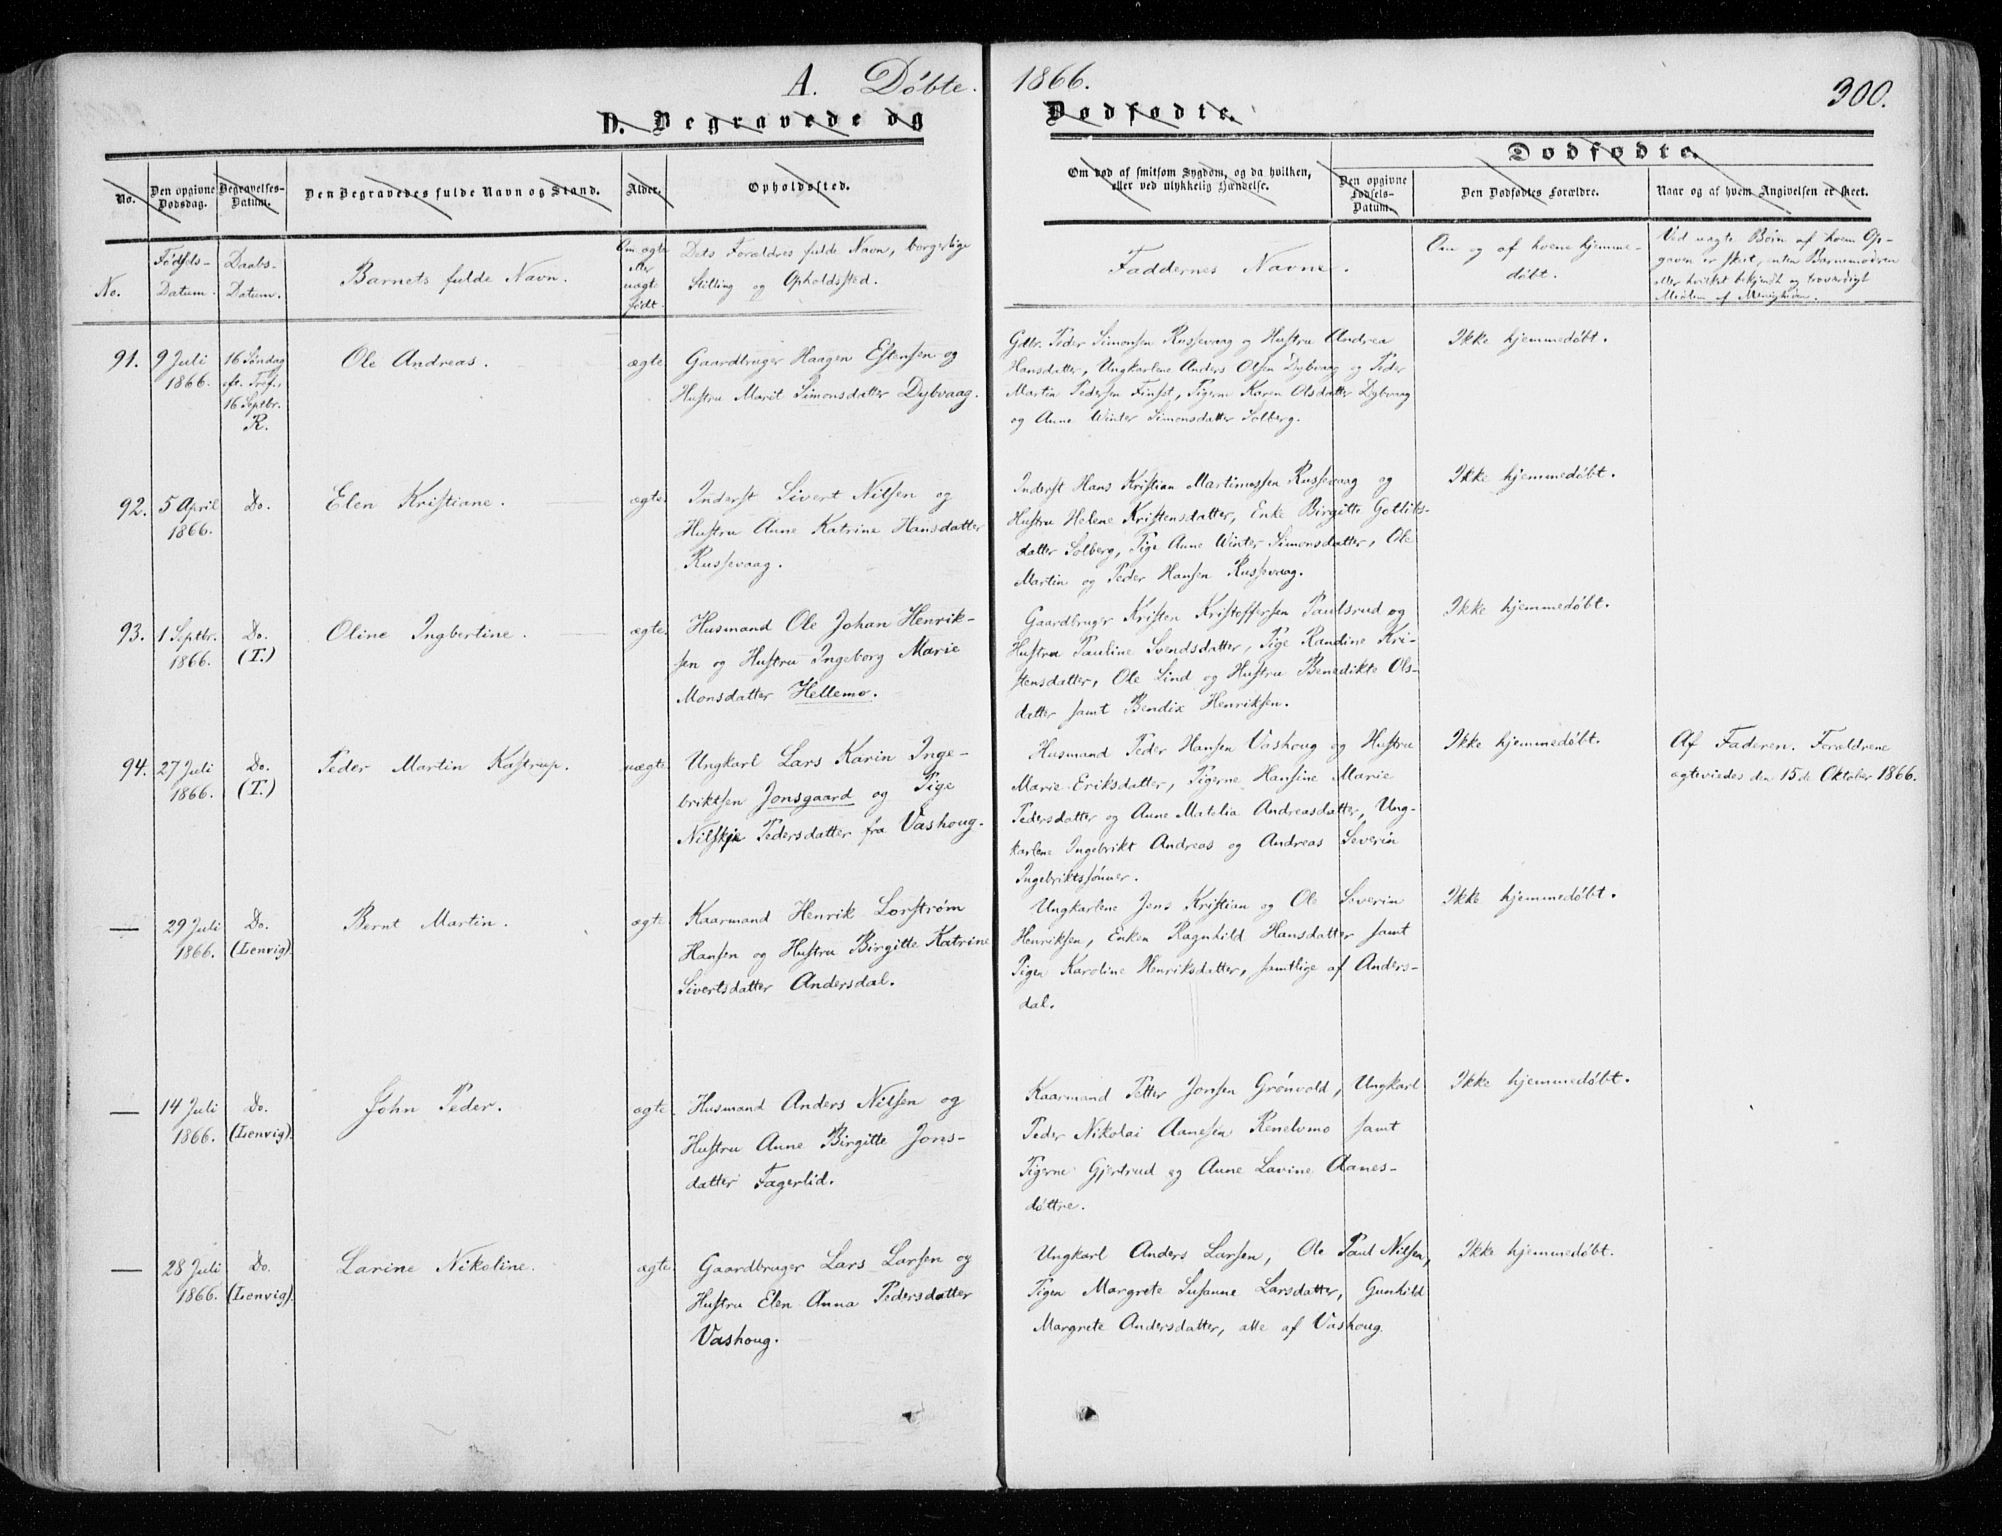 A. Döbte.
1866.
300.
D. Begravede og
Dødfødte.
No.
Den opgivne Dødsdag.
Begravelses-Datum.
Den Begravedes fulde Navn og Stand.
Alder.
Opholdssted.
Om død af smitsom Sygdom, og da hvilken,
eller ved ulykkelig Hændelse.
Dødfødte.
Den opgivne Fødsels-Datum.
Den Dødfødtes Forældre.
Naar og af hvem Angivelsen er skeet.
No.
Fødsels-
Datum.
Daabs-
Datum.
Barnets fulde Navn.
Om ægte
eller
uægte
født.
Dets Forældres fulde Navn, borgerlige
Stilling og Opholdssted.
Faddernes Navne.
Om og af hvem hjemme-
døbt.
Ved uægte Børn af hvem Op-
gaven er skeet, enten Barnemoderen
eller hvilket bekjendt og troværdigt
Medlem af Menigheden.
91.
9 Juli
1866.
16 Søndag
eft. Tref.,
16 Septbr.
R.
Ole Andreas.
ægte
Gaardbruger Haagen Estensen og
Hustru Marit Simonsdatter Dybvaag.
Gdbr. Peder Simonsen Russevaag og Hustru Andrea
Hansdatter, Ungkarlene Anders Olsen Dybvaag og Peder
Martin Pedersen Finset, Pigerne Karen Olsdatter Dybvaag
og Anne Winter Simonsdatter Solberg.
Ikke hjemmedøbt.
92.
5 April
1866.
Do.
Elen Kristiane.
ægte.
Inderst Sivert Nilsen og
Hustru Anne Katrine Hansdatter
Russevaag.
Inderst Hans Kristian Martinussen Russevaag og
Hustru Helene Kristensdatter, Enke Birgitte Gotliks-
datter Solberg, Pige Anne Winter Simonsdatter, Ole
Martin og Peder Hansen Russevaag.
Ikke hjemmedøbt.
93.
1 Septbr.
1866.
Do.
(T.)
Oline Ingbertine.
ægte.
Husmand Ole Johan Henrik-
sen og Hustru Ingeborg Marie
Monsdatter Hellemo.
Gaardbruger Kristen Kristoffersen Paulsrud og
Hustru Pauline Svendsdatter, Pige Randine Kri-
stensdatter, Ole Lind og Hustru Benedikte Ols-
datter samt Bendix Henriksen.
Ikke hjemmedøbt.
94.
27 Juli
1866.
Do.
(T.)
Peder Martin Kastrup.
uægte.
Ungkarl Lars Karin Inge-
briktsen Jonsgaard og Pige
Nilskja Pedersdatter fra Vashoug.
Husmand Peder Hansen Vashoug og Hustru
Marie Eriksdatter, Pigerne Hansine Marie
Pedersdatter og Anne Matelia Andreasdatter, Ung-
karlene Ingebrikt Andreas og Andreas Severin
Ingebriktssønner.
Ikke hjemmedøbt.
Af Faderen. Forældrene
ægteviedes den 15de Oktober 1866.
—
29 Juli
1866.
Do.
(Lenvig).
Bernt Martin.
ægte
Kaarmand Henrik Lorstrøm
Hansen og Hustru Birgitte Katrine
Sivertsdatter Andersdal.
Ungkarlene Jens Kristian og Ole Severin
Henriksen, Enken Ragnhild Hansdatter samt
Pigen Karoline Henriksdatter, samtlige af Anders-
dal.
Ikke hjemmedøbt.
—
14 Juli
1866.
Do.
(Lenvig).
John Peder.
ægte.
Husmand Anders Nilsen og
Hustru Anne Birgitte Jons-
datter Fagerlid.
Kaarmand Petter Jonsen Grønvold, Ungkarl
Peder Nikolai Aanesen Renelvmo samt
Pigerne Gjertrud og Anne Lavine Aanes-
døttre.
Ikke hjemmedøbt.
—
28 Juli
1866.
Do.
(Lenvig).
Larine Nikoline.
ægte.
Gaardbruger Lars Larsen og
Hustru Elen Anna Pedersdatter
Vashoug.
Ungkarl Anders Larsen, Ole Paul Nilsen,
Pigen Margrete Susanne Larsdatter, Gunhild
Margrete Andersdatter, alle af Vashoug.
Ikke hjemmedøbt.